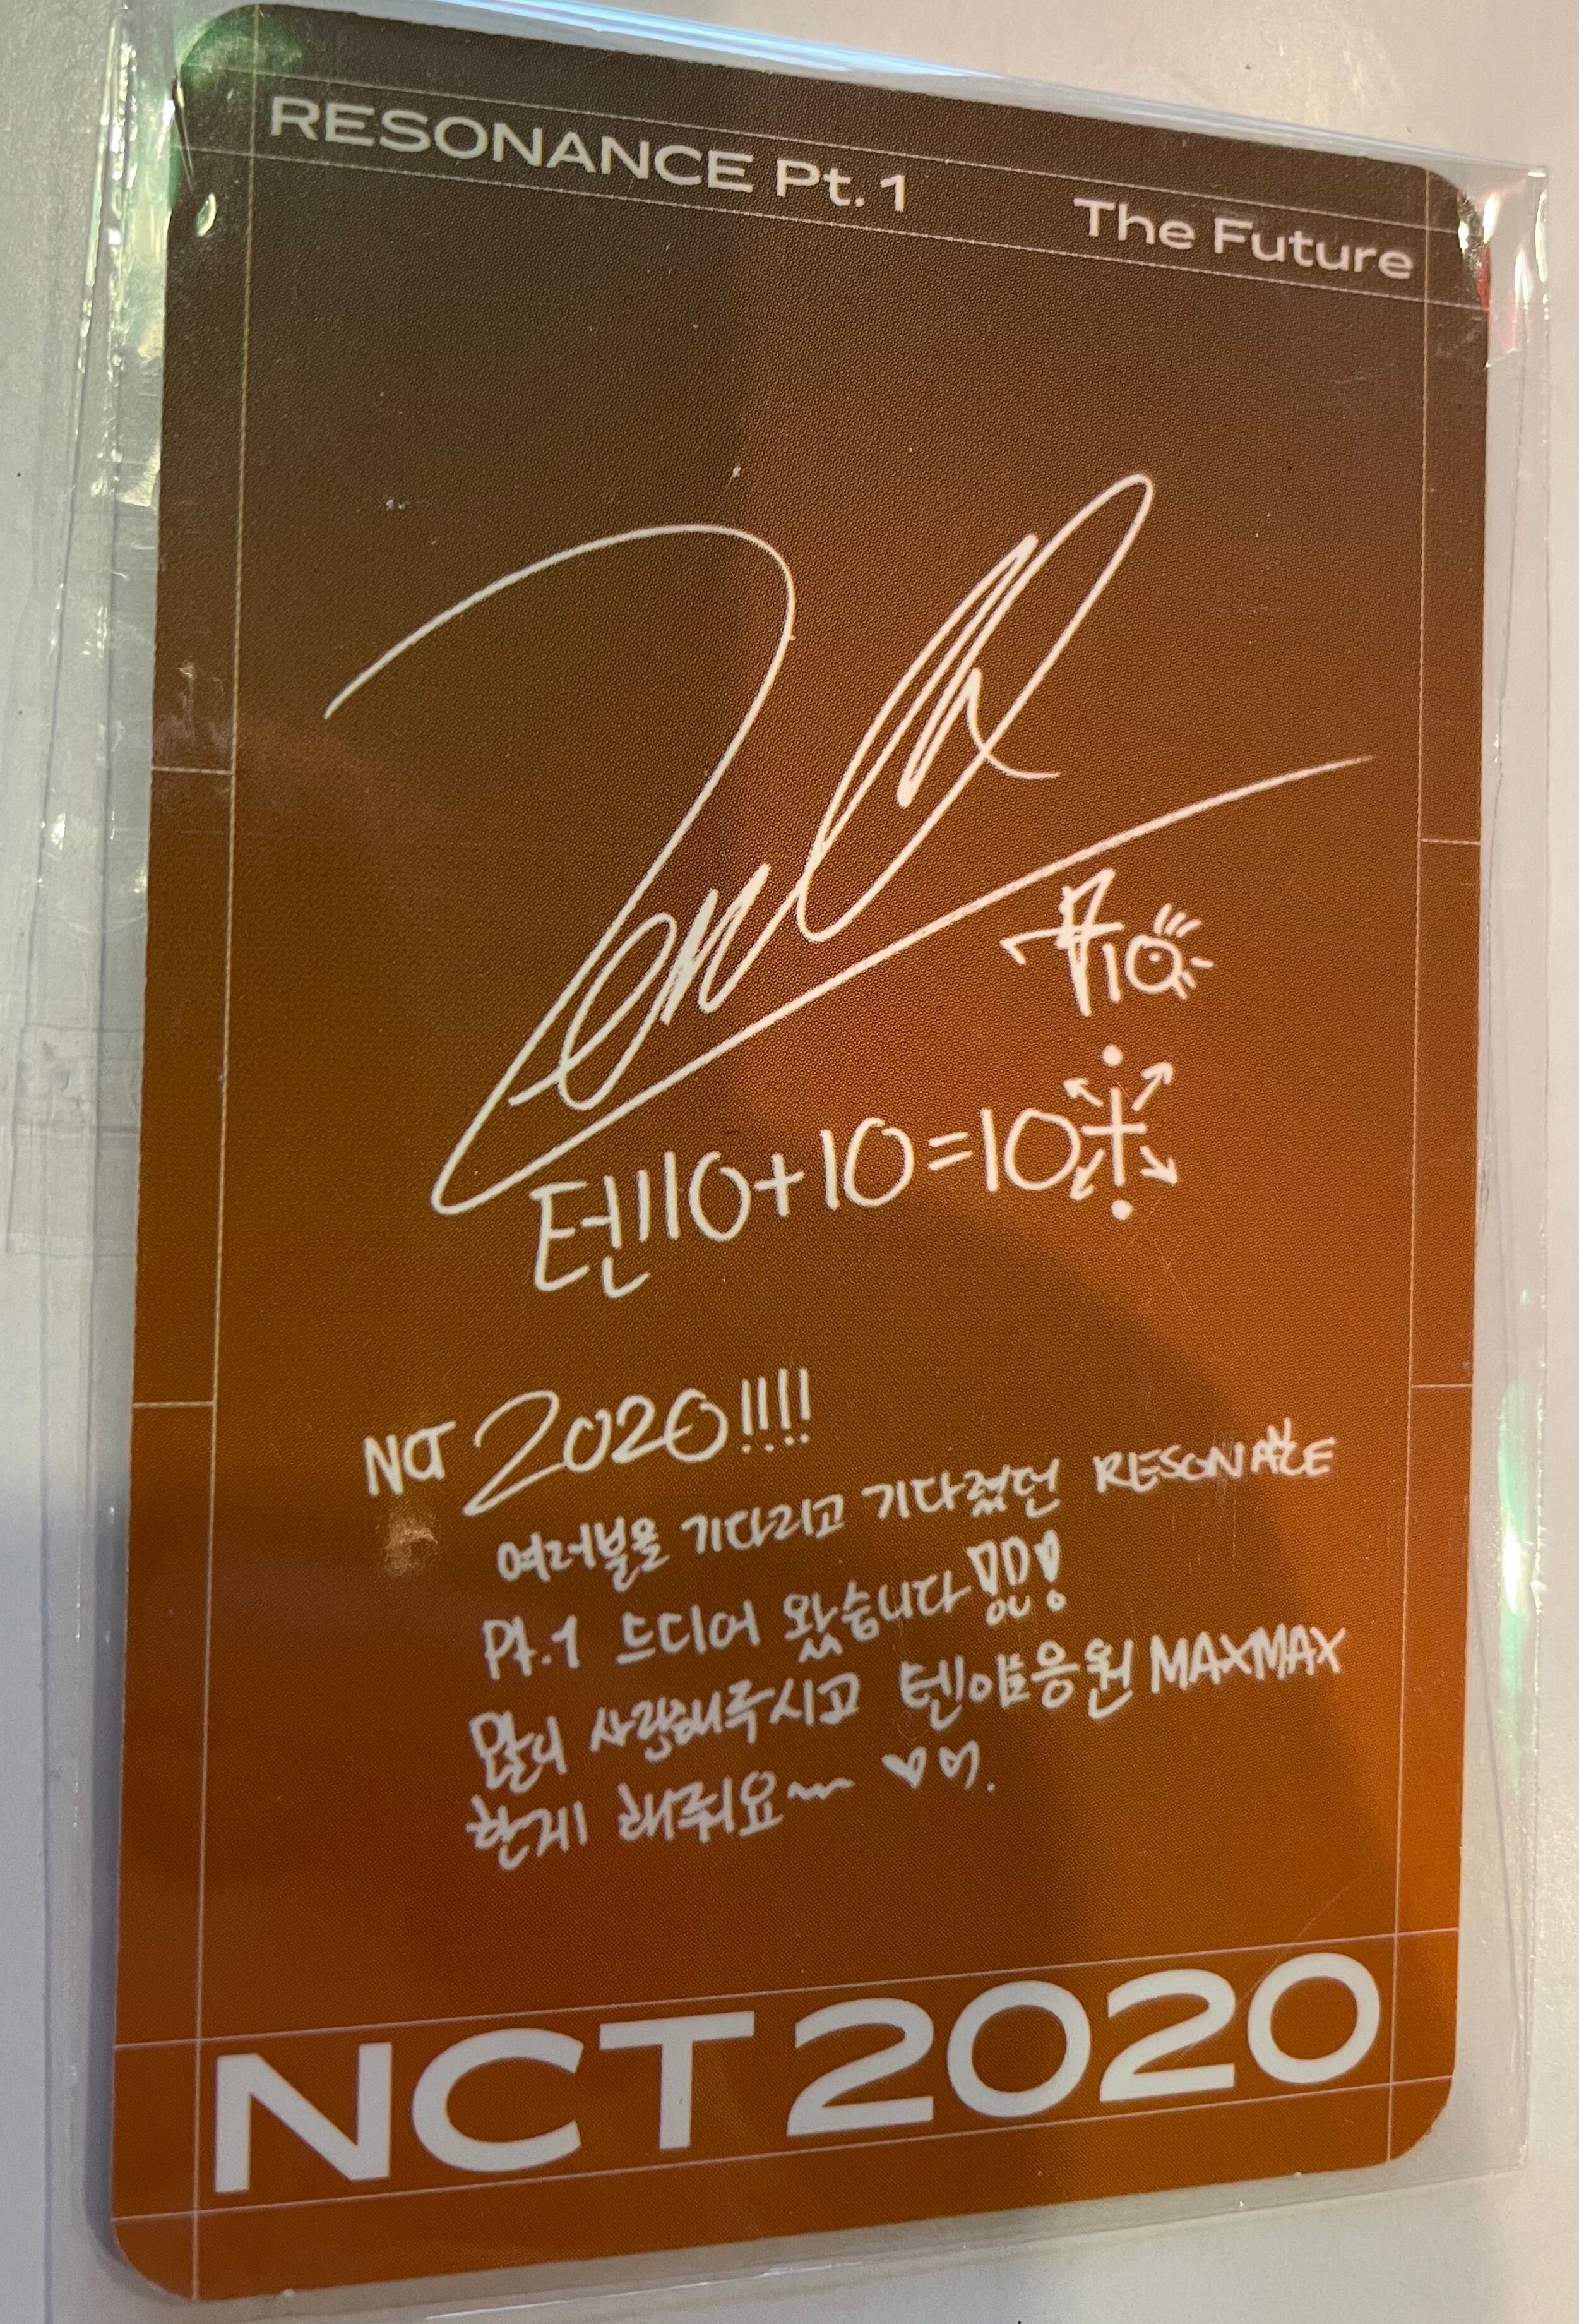 RESONANCE Pt. 1 The Future
텐10+10=10
NCT 2020!!!!
여러분을 기다리고 기다렸던 RESONANCE
Pt.1 드디어 왔습니다!!!
많이 사랑해주시고 텐 응원 MAXMAX
하게 해줘요~ ♥♡.
NCT 2020